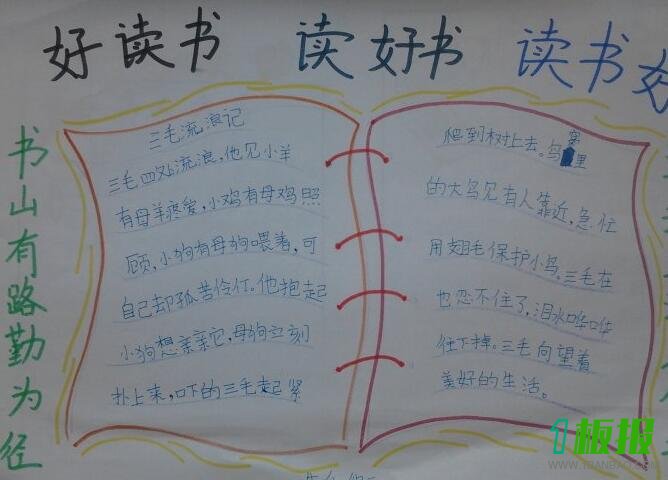 好读书 读好书 读书好
书山有路勤为径
三毛流浪记
三毛四处流浪，他见小羊
有母羊疼爱，小鸡有母鸡照
顾，小狗有母狗喂着，可
自己却孤苦伶仃。他抱起
小狗想亲亲它，母狗立刻
扑上来，吓的三毛赶紧
爬到树上去。鸟窝里
的大鸟见有人靠近，急忙
用翅毛保护小鸟。三毛在
也忍不住了，泪水哗哗
往下掉。三毛向望着
美好的生活。
1板报
WWW.1BANBAO.COM